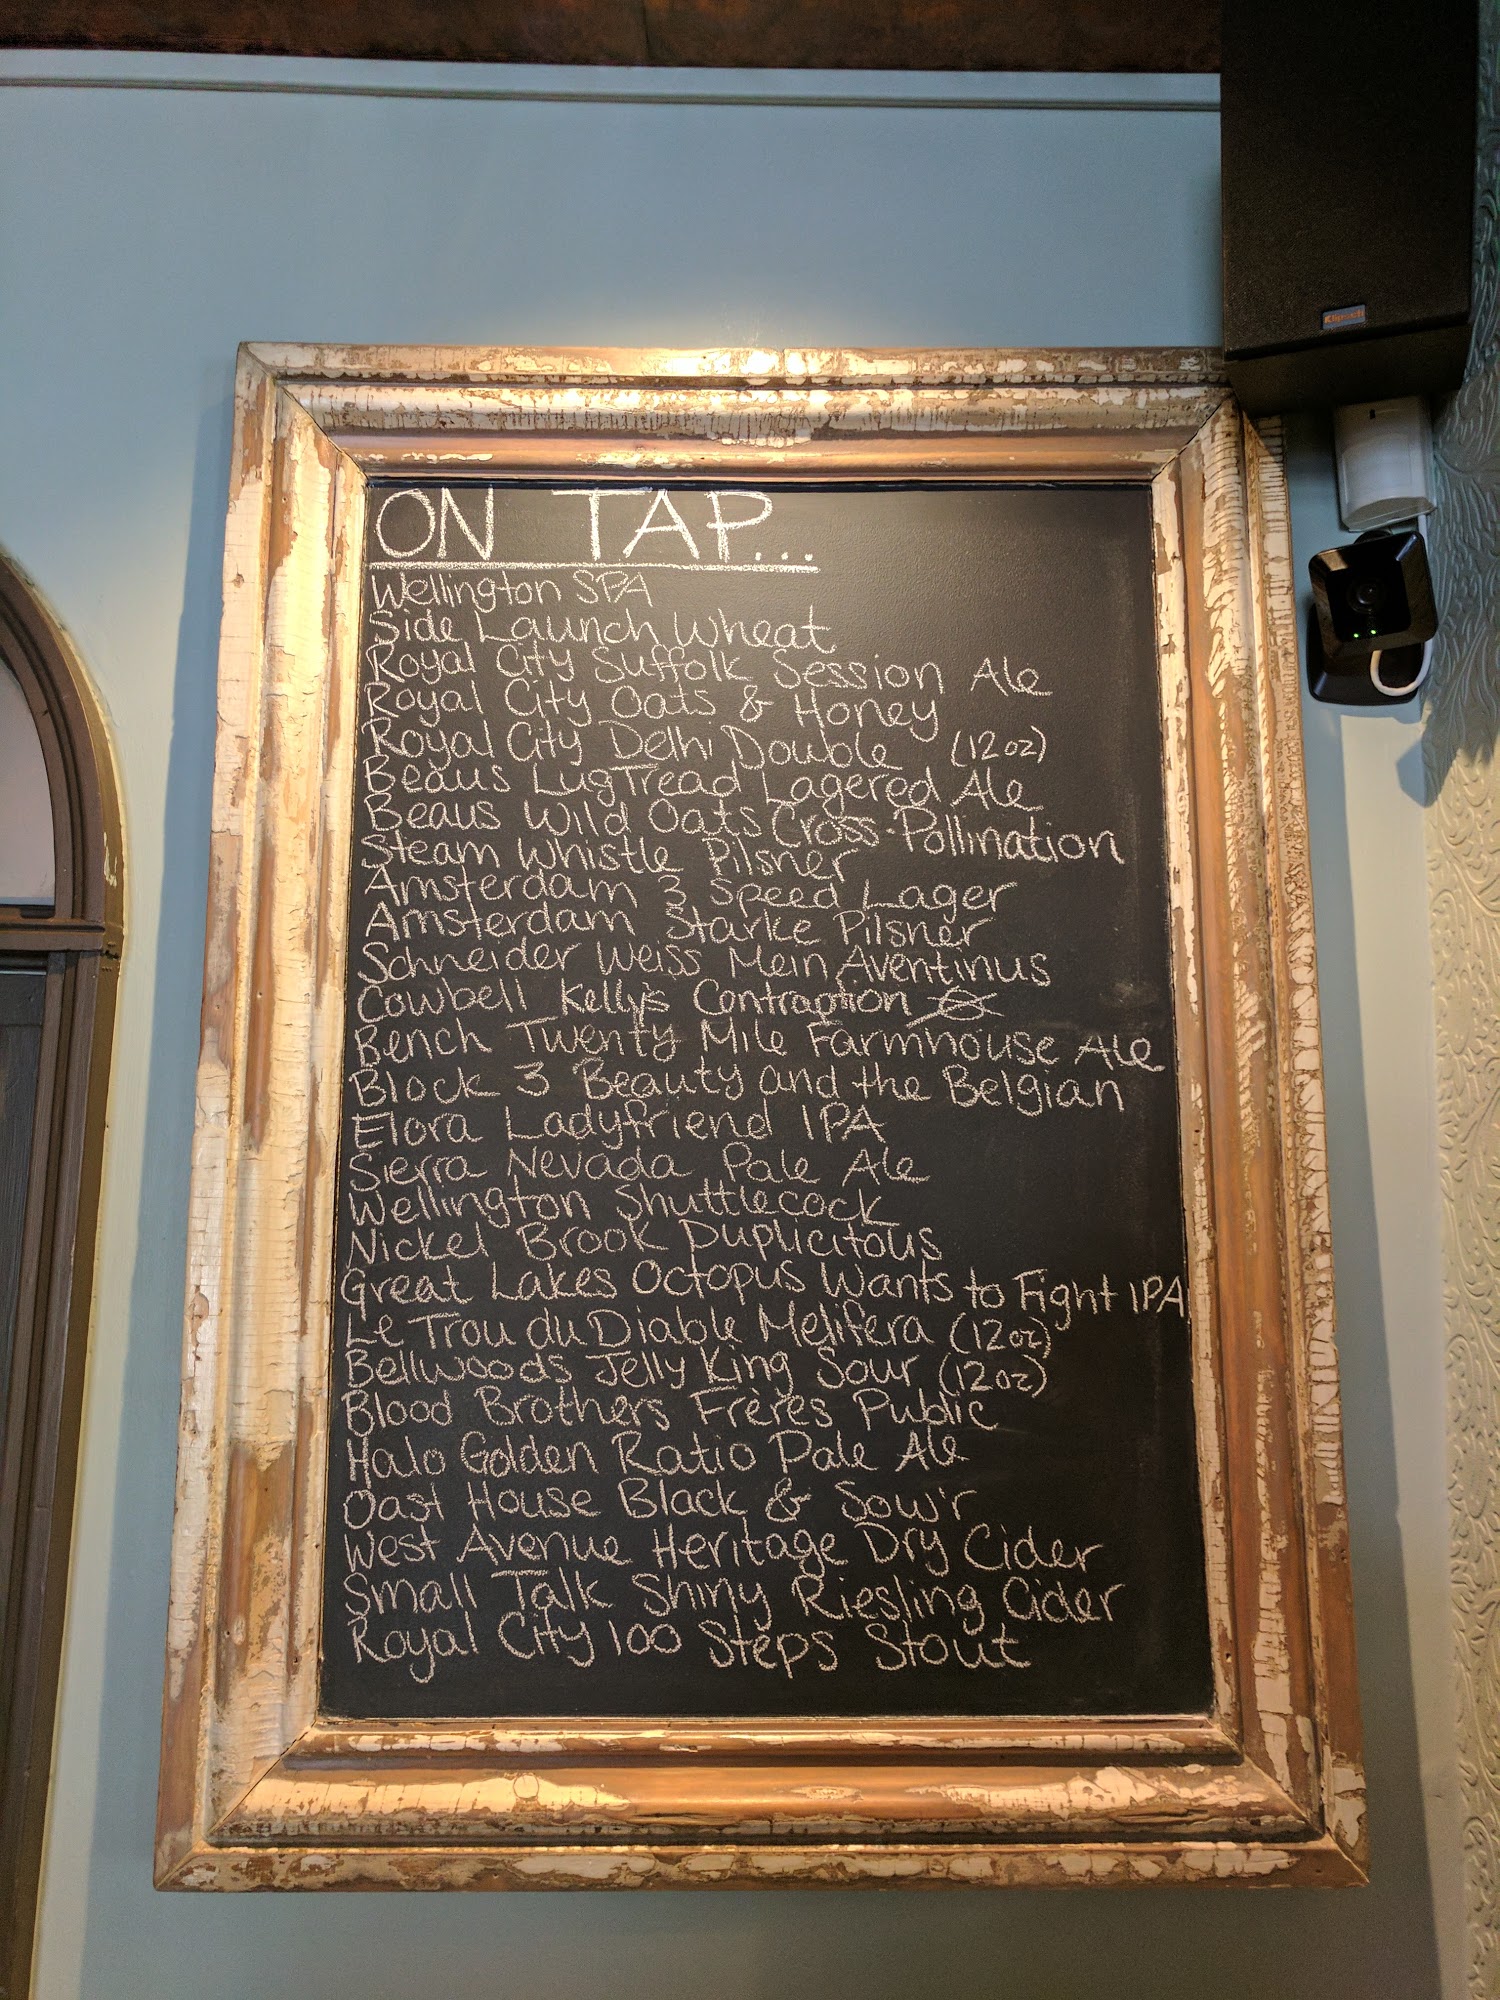 ON TAP...
Wellington SPA
Side Launch Wheat
Royal City Suffolk Session Ale
Royal City Oats & Honey
Royal City Delhi Double (12oz)
Beaus LugTread Lagered Ale
Beaus Wild Oats Cross-Pollination
Steam Whistle Pilsner
Amsterdam 3 Speed Lager
Amsterdam Starke Pilsner
Schneider Weiss Mein Aventinus
Cowbell Kelly's Contraption
Bench Twenty Mile Farmhouse Ale
Block 3 Beauty and the Belgian
Elora Ladyfriend IPA
Sierra Nevada Pale Ale
Wellington Shuttlecock
Nickel Brook Duplicitous
Great Lakes Octopus Wants to Fight IPA
Le Trou du Diable Melifera (12oz)
Bellwoods Jelly King Sour (12oz)
Blood Brothers Frères Public
Halo Golden Ratio Pale Ale
Oast House Black & Sow'r
West Avenue Heritage Dry Cider
Small Talk Shiny Riesling Cider
Royal City 100 Steps Stout
Klipsch